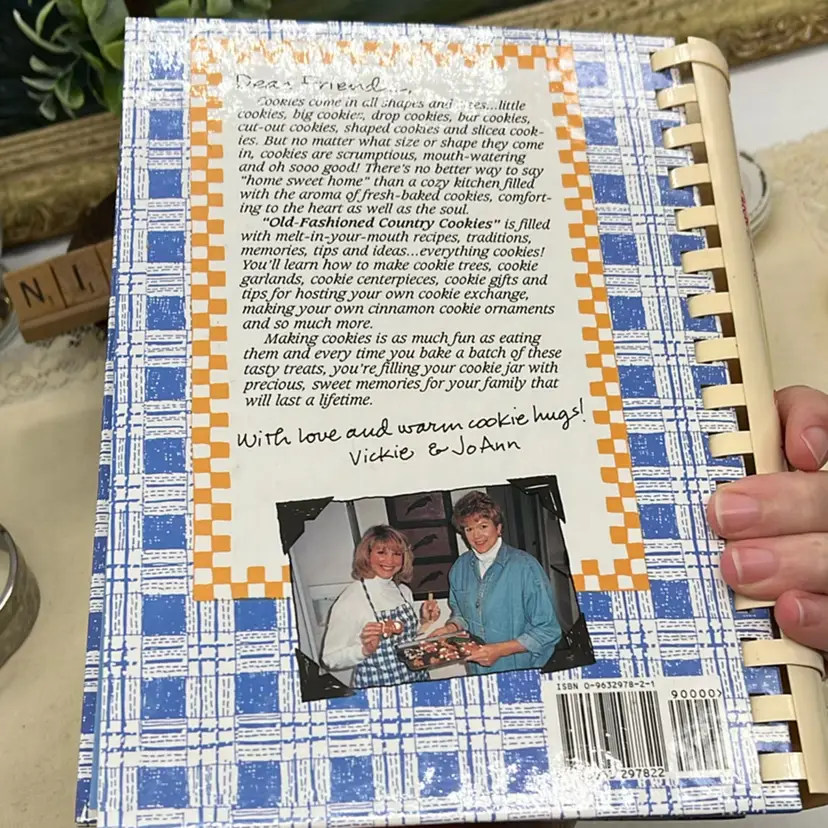 Dear Friend...,
Cookies come in all shapes and sizes...little
cookies, big cookies, drop cookies, bar cookies,
cut-out cookies, shaped cookies and sliced cook-
ies. But no matter what size or shape they come
in, cookies are scrumptious, mouth-watering
and oh sooo good! There's no better way to say
"home sweet home" than a cozy kitchen filled
with the aroma of fresh-baked cookies, comfort-
ing to the heart as well as the soul.
"Old-Fashioned Country Cookies" is filled
with melt-in-your-mouth recipes, traditions,
memories, tips and ideas...everything cookies!
You'll learn how to make cookie trees, cookie
garlands, cookie centerpieces, cookie gifts and
tips for hosting your own cookie exchange,
making your own cinnamon cookie ornaments
and so much more.
Making cookies is as much fun as eating
them and every time you bake a batch of these
tasty treats, you're filling your cookie jar with
precious, sweet memories for your family that
will last a lifetime.
With love and warm cookie hugs!
Vickie & JoAnn
ISBN 0-9632978-2-1
90000>
297822
N I